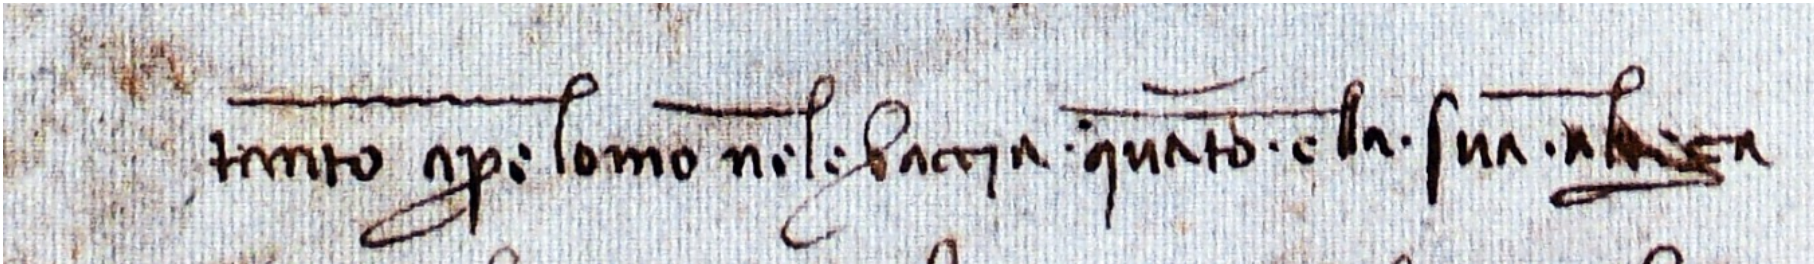 tanto apre lomo nele braccia · quāto · ella · sua · alteza